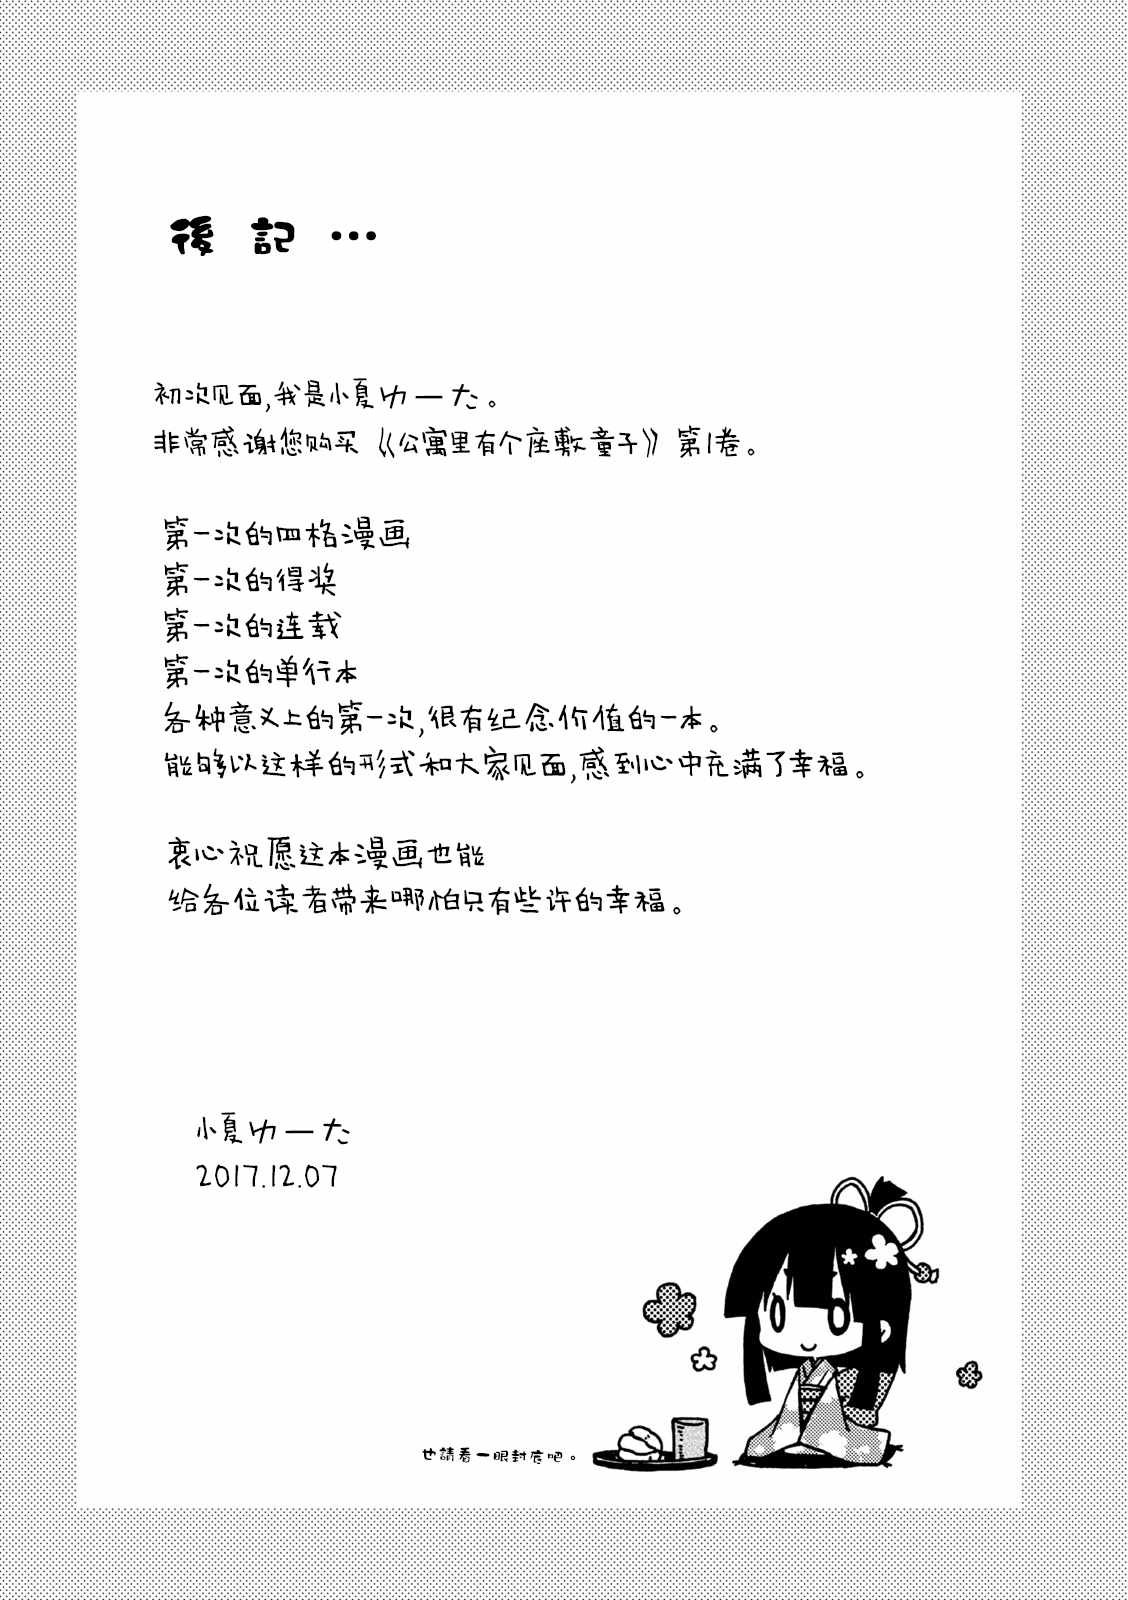 後記…
初次见面,我是小夏ゆーた。
非常感谢您购买《公寓里有个座敷童子》第1卷。
第一次的四格漫画
第一次的得奖
第一次的连载
第一次的单行本
各种意义上的第一次,很有纪念价值的一本。
能够以这样的形式和大家见面,感到心中充满了幸福。
衷心祝愿这本漫画也能
给各位读者带来哪怕只有些许的幸福。
小夏ゆーた
2017.12.07
也請看一眼封底吧。